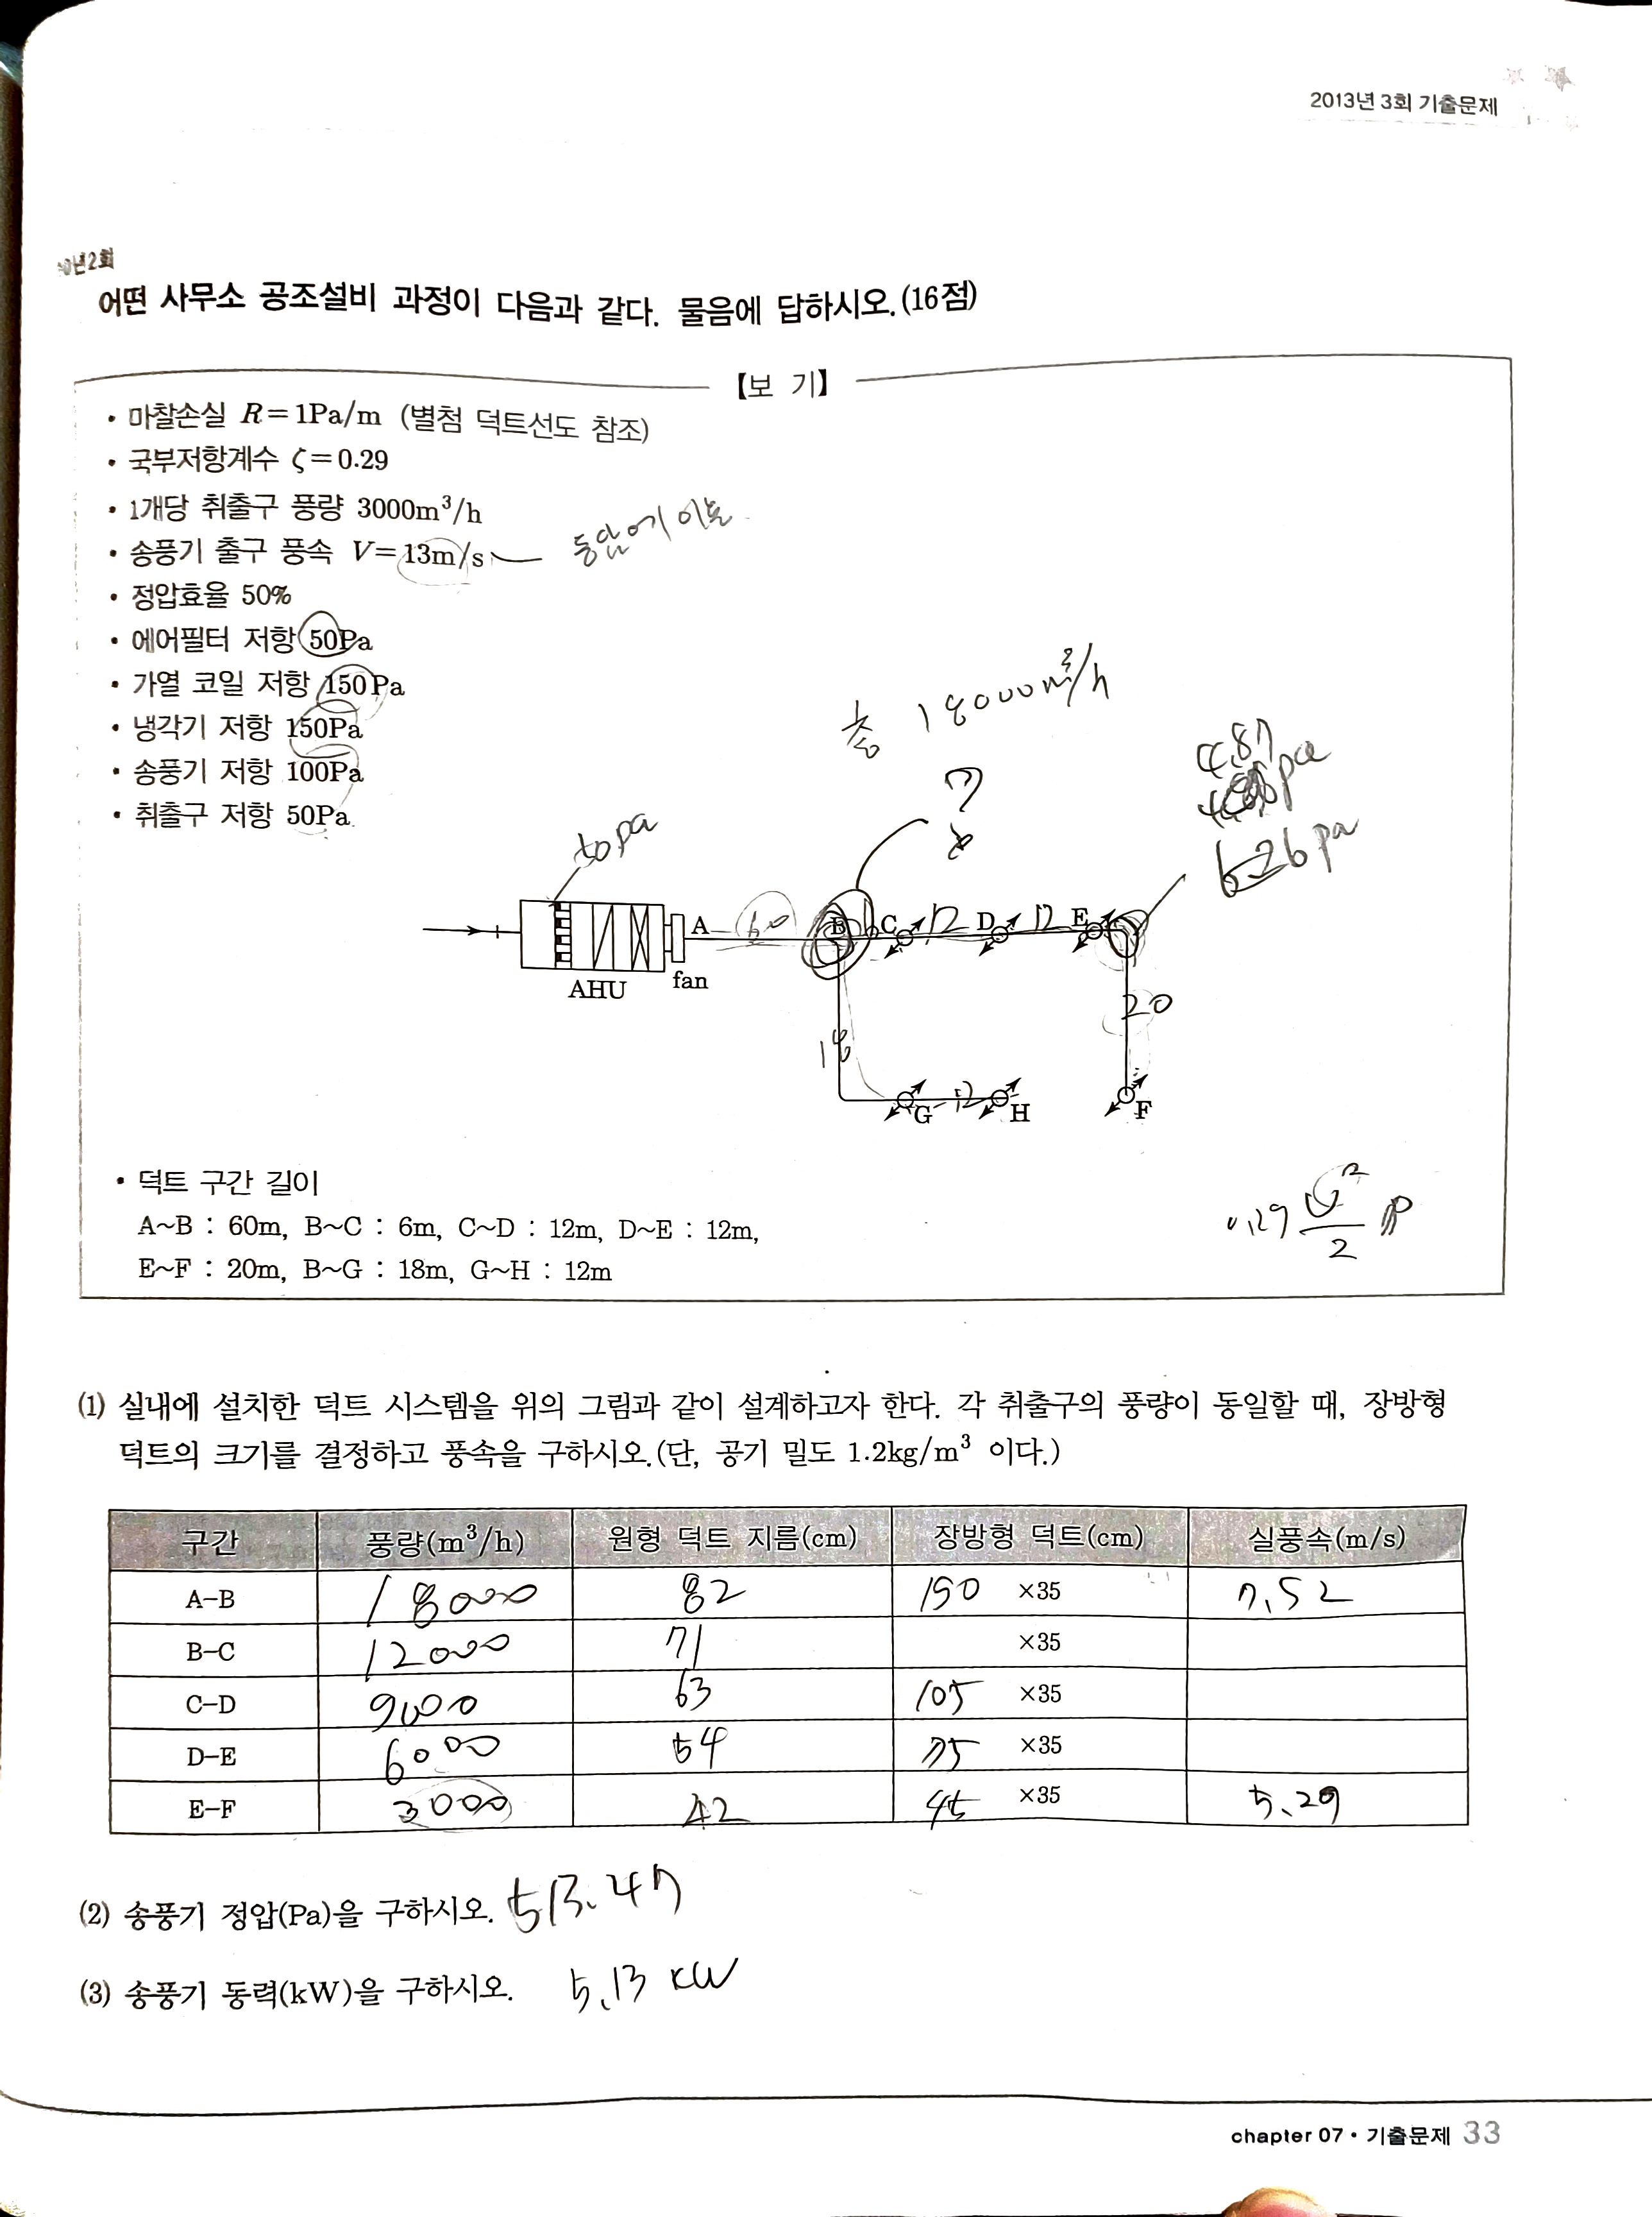 2013년 3회 기출문제
년2회
어떤 사무소 공조설비 과정이 다음과 같다. 물음에 답하시오.(16점)
【보 기】
• 마찰손실 R=1Pa/m (별첨 덕트선도 참조)
• 국부저항계수 ζ=0.29
• 1개당 취출구 풍량 3000m³/h
• 송풍기 출구 풍속 V=13m/s
동압에 이용
• 정압효율 50%
• 에어필터 저항 50Pa
• 가열 코일 저항 150Pa
• 냉각기 저항 150Pa
• 송풍기 저항 100Pa
• 취출구 저항 50Pa
총 18000m³/h
4.87
pa
6.26 pa
50pa
A 60 B C 12 D 12 E
AHU
fan
20
18
G 12 H
F
• 덕트 구간 길이
A~B : 60m, B~C : 6m, C~D : 12m, D~E : 12m,
E~F : 20m, B~G : 18m, G~H : 12m
0.29 v²/2 ρ
(1) 실내에 설치한 덕트 시스템을 위의 그림과 같이 설계하고자 한다. 각 취출구의 풍량이 동일할 때, 장방형
덕트의 크기를 결정하고 풍속을 구하시오.(단, 공기 밀도 1.2kg/m³ 이다.)
구간 풍량(m³/h) 원형 덕트 지름(cm) 장방형 덕트(cm) 실풍속(m/s)
A-B 18000 82 190 ×35 7.52
B-C 12000 71 ×35
C-D 9000 63 105 ×35
D-E 6000 54 75 ×35
E-F 3000 42 45 ×35 5.29
(2) 송풍기 정압(Pa)을 구하시오. 513.47
(3) 송풍기 동력(kW)을 구하시오. 5.13 kW
chapter 07 • 기출문제 33